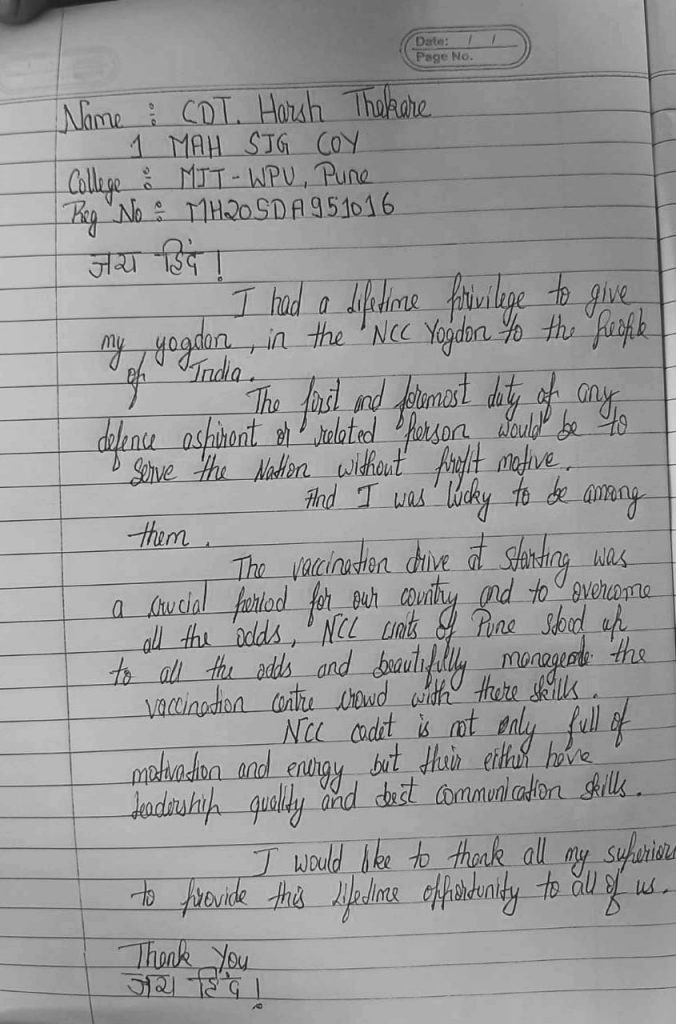 Date: / /
Page No.
Name : CDT. Harsh Thakare
1 MAH SIG COY
College : MIT-WPU, Pune
Reg No : MH20SDA951016
जय हिंद !
I had a lifetime privilege to give
my yogdan, in the NCC Yogdan to the People
of India.
The first and foremost duty of any
defence aspirant or related person would be to
serve the Nation without profit motive.
And I was lucky to be among
them.
The vaccination drive at starting was
a crucial period for our country and to overcome
all the odds, NCC units of Pune stood up
to all the odds and beautifully manage the
vaccination centre crowd with there skills.
NCC cadet is not only full of
motivation and energy but their either have
leadership quality and best communication skills.
I would like to thank all my superior
to provide this lifetime opportunity to all of us.
Thank You
जय हिंद !